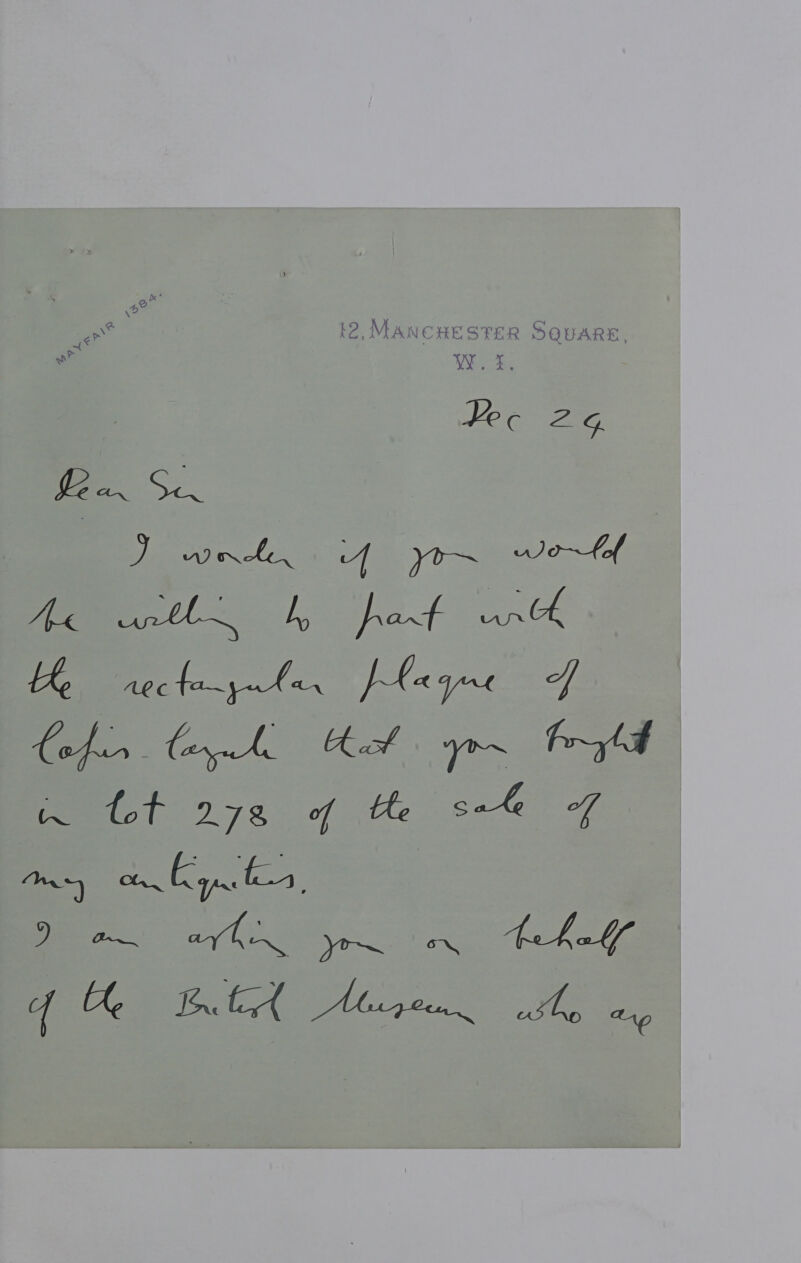 MAYFAIR 1384.
12, MANCHESTER SQUARE,
W. 1.
Dec 24
Dear Sir
I wonder if you would
be willing to part with
the rectangular plaque of
lapis-lazuli that you bought
in lot 278 of the sale of
my antiquities.
I am asking you on behalf
of the British Museum who are